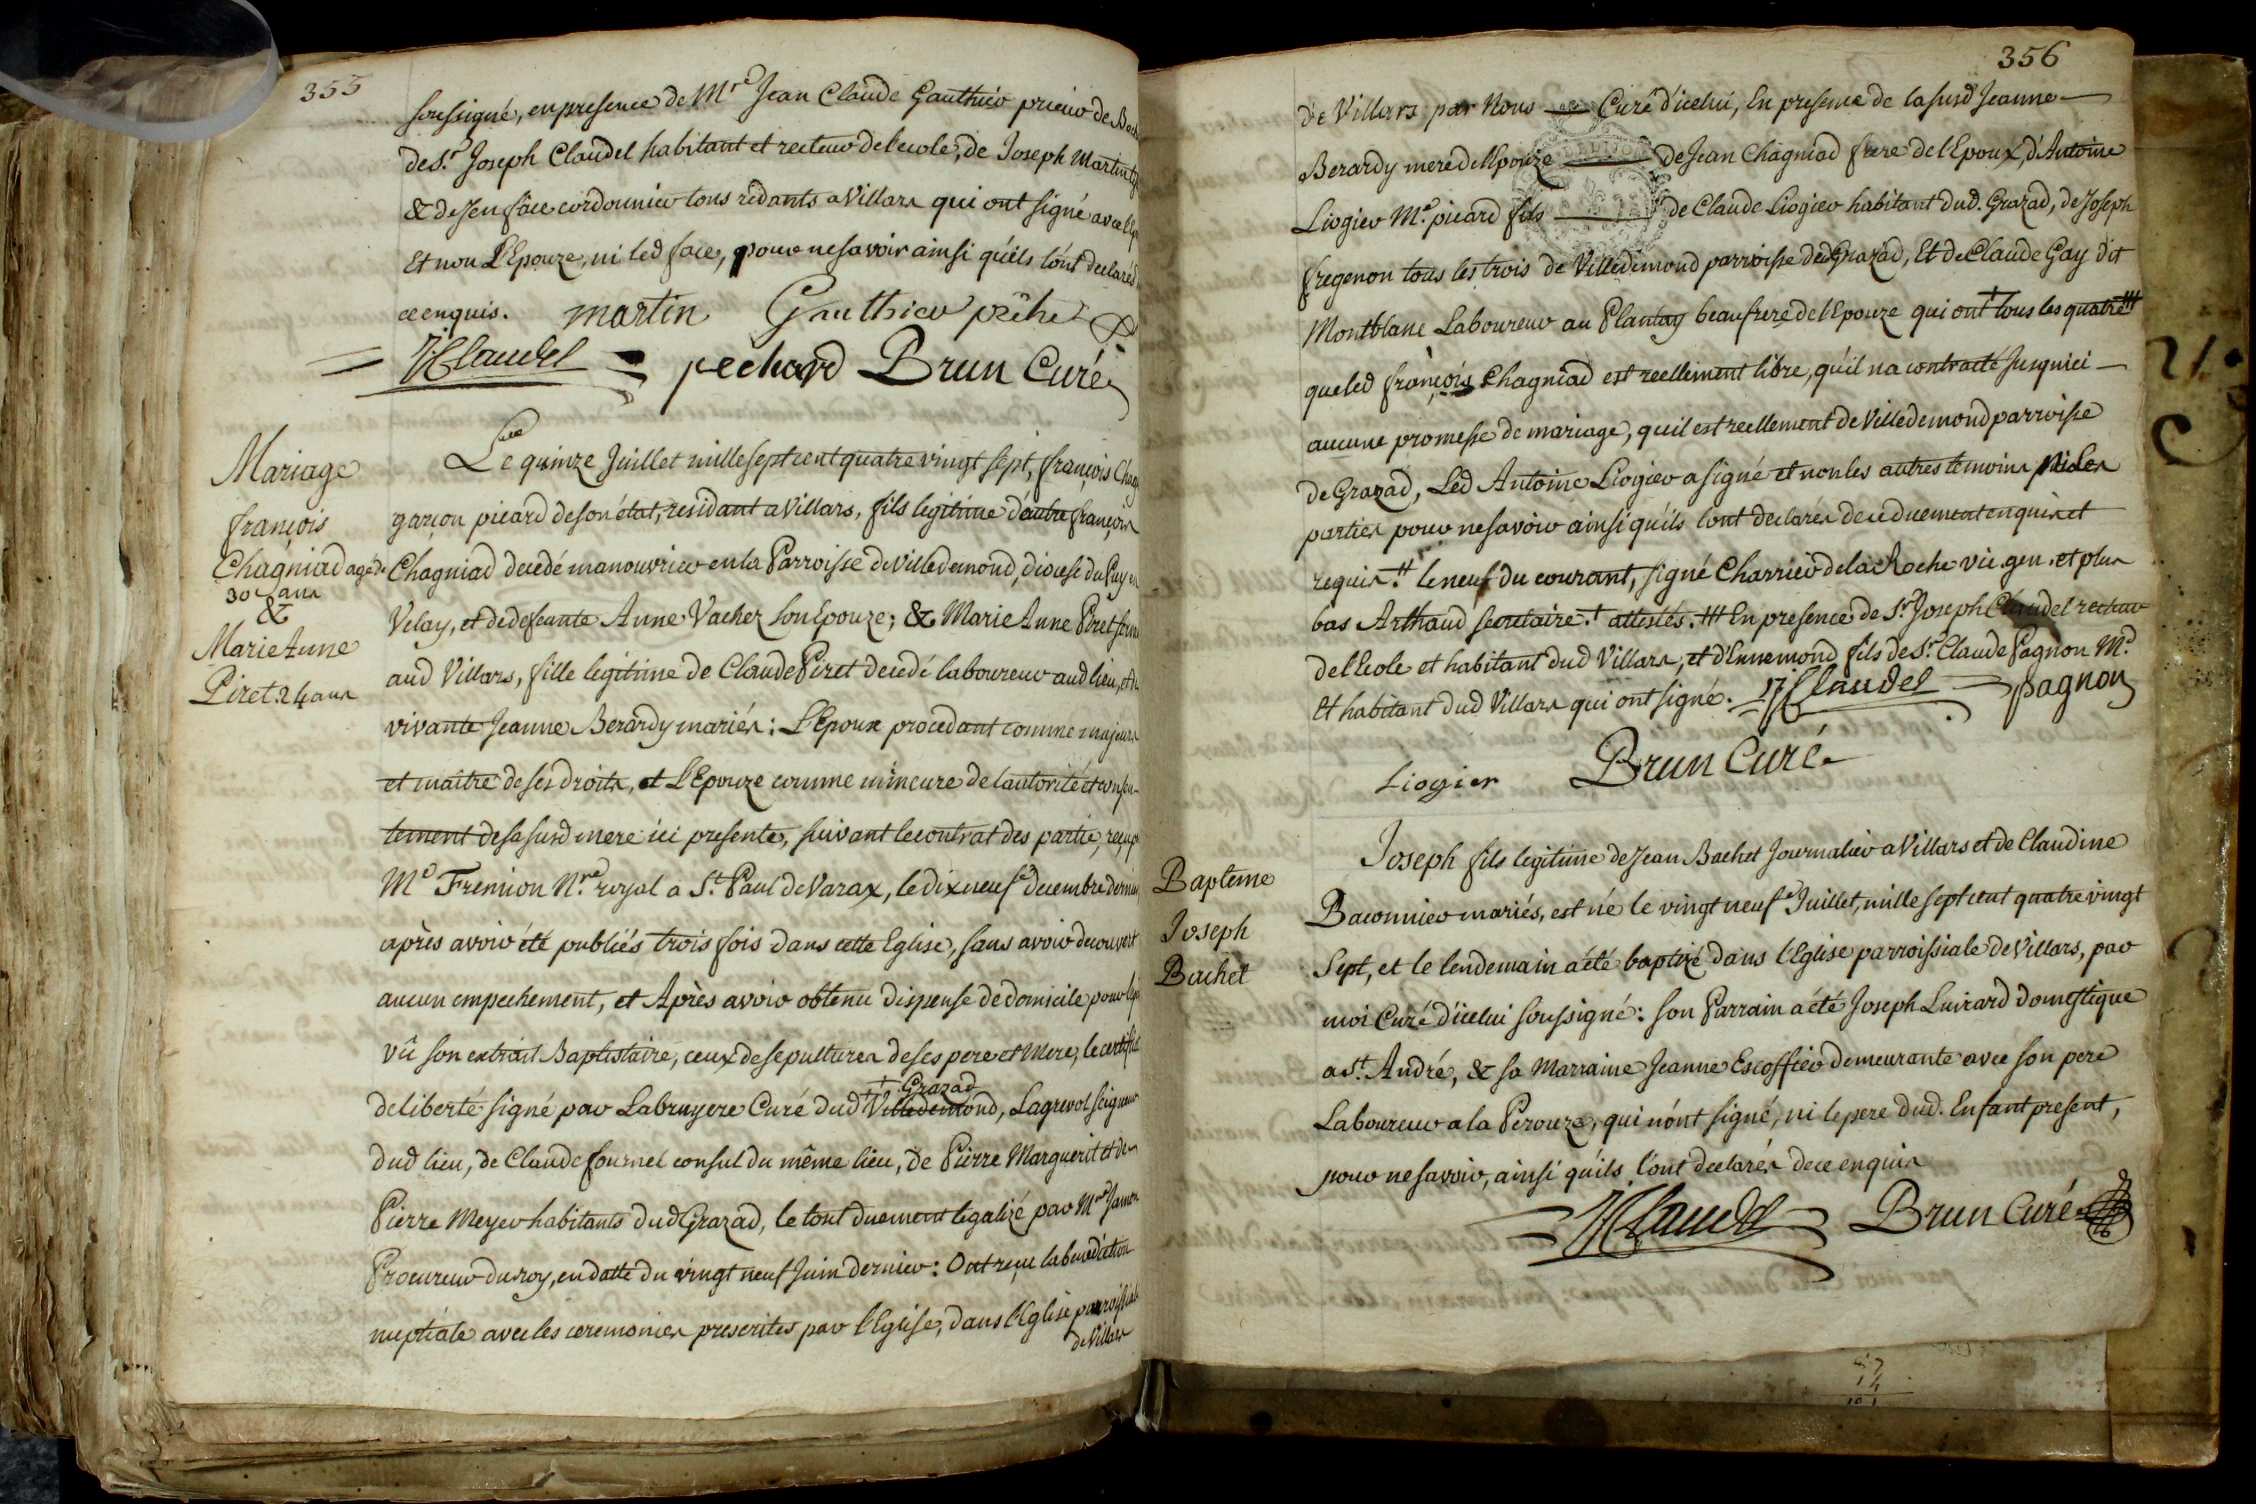 355
soussigné, en presence de Mre Jean Claude Gauthier prieur de
de Sr. Joseph Claudel habitant et recteur de l'ecole, de Joseph Martin
& de Jen face cordonnier tous rédants a Villars qui ont signé avec
Et non L'Epouze, ni led face, pour ne savoir ainsi qu'ils l'ont declarés
ce enquis. martin Gauthier
Claudel pechard Brun Curé
Mariage
françois
Chagniad agé de
30 ans
&
Marie Anne
Piret 24 ans
Le quinze Juillet mille sept cent quatre vingt sept, françois
garçon picard de son état, residant a Villars, fils legitime d'autre françois
Chagniad decedé manouvrier en la Parroisse de Villedemond, diocese du Puy en
Velay, et de defeante Anne Vacher son Epouze; & Marie Anne Piret
aud Villars, fille legitime de Claude Piret decedé laboureur aud lieu, et de
vivante Jeanne Berardy mariés: L'Epoux procedant comme majeur
et maître de ses droits, et L'Epouze comme mineure de l'autorité et consen-
tement de sa susd mere ici presente, suivant le contrat des partie, reçu
Me Fremion Nre. royal a St. Paul de Varax, le dix neufe decembre dernier
après avoir été publiés trois fois dans cette Eglise, sans avoir decouvert
aucun empechement, et Après avoir obtenu dispense de domicile pour
vû son extrait Baptistaire, ceux de sepultures de ses pere et Mere, le certificat
de liberté signé par Labruyere Curé dud + Villedemond, Lagrevol seigneur
+ Grazad
dud lieu, de Claude fournel consul du même lieu, de Pierre Marguerit et de
Pierre Meyer habitants dud Grazad, le tout duement legalizé par Mre Jamon
Procureur du roy, en datte du vingt neuf Juin dernier: Ont reçue la benediction
nuptiale avec les ceremonies prescrites par l'Eglise, dans l'Eglise parroissiale
de Villars
356
de Villars par Nous Curé d'icelui, En presence de la susd Jeanne
Berardy mere de l'Epouze de Jean Chagniad frere de l'Epoux, d'Antoine
Liogier Me. picard fils de Claude Liogier habitant dud. Grazad, de Joseph
fregenon tous les trois de Villedemond parroisse de Grazad, Et de Claude Gay dit
Montblanc Laboureur au Plantay beaufrere de l'Epouze qui ont + tous les quatre ###
que led françois Chagniad est reellement libre, qu'il n'a contracté jusqu'ici
aucune promesse de mariage, qu'il est reellement de Villedemond parroisse
de Grazad, Led Antoine Liogier a signé et non les autres temoins ni les
parties pour ne savoir ainsi qu'ils l'ont declarés de ce duement enquis et
requis. # le neuf du courant, signé Charrier de la Roche vic. gen. et plus
bas Arthaud secretaire. + attestés. ### En presence de Sr Joseph Claudel recteur
de l'Ecole et habitant dud Villars, et d'Ennemond fils de Sr. Claude Pagnon Md.
Et habitant dud Villars qui ont signé. Claudel pagnon
Liogier Brun Curé
Bapteme
Joseph
Bachet
Joseph fils legitime de Jean Bachet Journalier a Villars et de Claudine
Baconnier mariés, est né le vingt neufe Juillet, mille sept cent quatre vingt
Sept, et le lendemain a été baptizé dans l'Eglise parroissiale de Villars, par
moi Curé d'icelui soussigné: son Parrain a été Joseph Luirard domestique
a St. André, & sa Marraine Jeanne Escoffier demeurante avec son pere
Laboureur a la Perouze, qui n'ont signé, ni le pere dud. Enfant present,
pour ne savoir, ainsi qu'ils l'ont declarés de ce enquis
Claudel Brun Curé